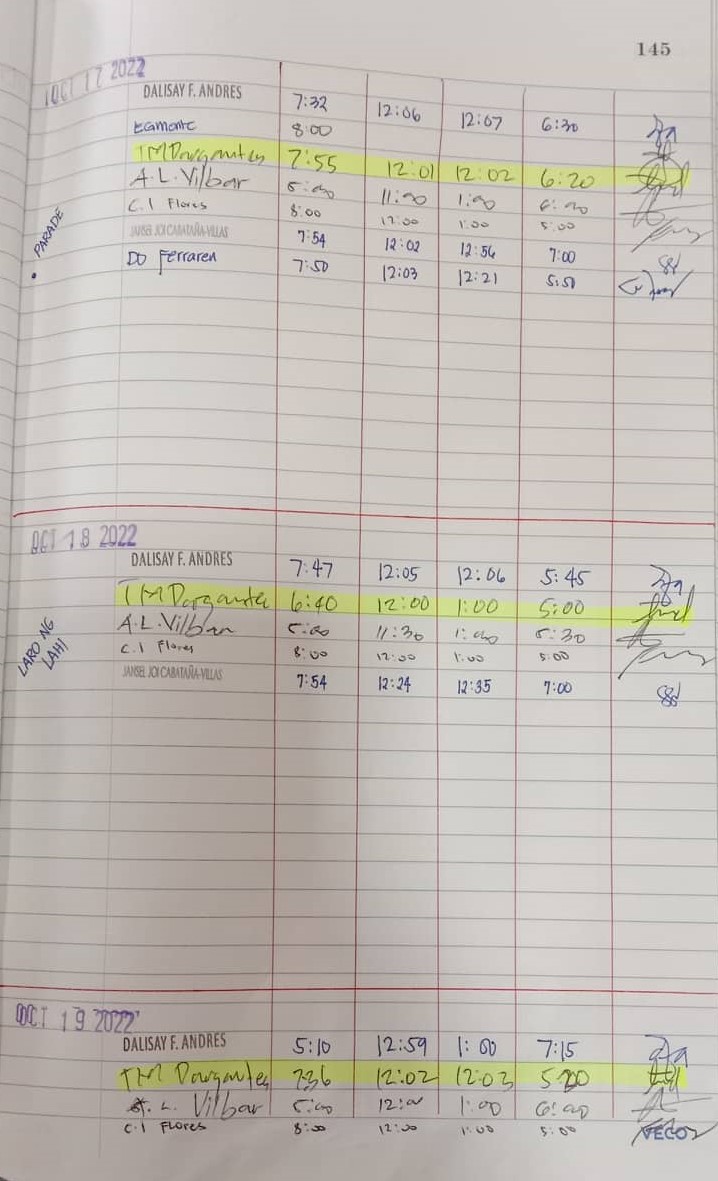 145
OCT 17 2022
DALISAY F. ANDRES 7:32 12:06 12:07 6:30
Egmonte 8:00
TM Dargantes 7:55 12:01 12:02 6:20
A.L. Vilbar 5:00 11:00 1:00 6:00
C.I Flores 8:00 12:00 1:00 5:00
JANSEL JOI CABATAÑA-VILLAS 7:54 12:02 12:56 7:00
DO Ferraren 7:50 12:03 12:21 5:51
• PARADE
OCT 18 2022
DALISAY F. ANDRES 7:47 12:05 12:06 5:45
TM Dargantes 6:40 12:00 1:00 5:00
A.L. Vilbar 5:00 11:30 1:00 5:30
C.I Flores 8:00 12:00 1:00 5:00
JANSEL JOI CABATAÑA-VILLAS 7:54 12:24 12:35 7:00
LARO NG
LAHI
OCT 19 2022
DALISAY F. ANDRES 5:10 12:59 1:00 7:15
TM Dargantes 736 12:02 12:03 520
A. L. Vilbar 5:00 12:00 1:00 6:00
C.I FLORES 8:00 12:00 1:00 5:00
VECO